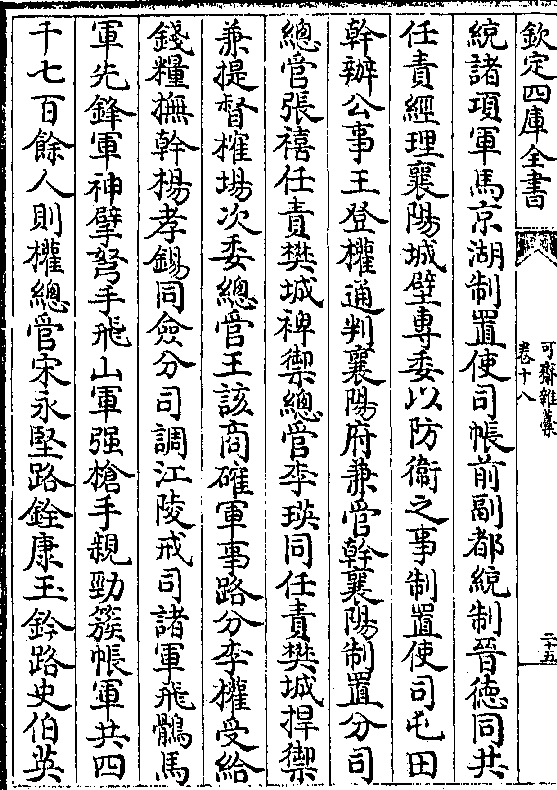 欽定四庫全書
可齋雜藁
卷十八
二十五
統諸項軍馬京湖制置使司帳前副都統制晉德同共
任責經理襄陽城壁專委以防衞之事制置使司屯田
幹辦公事王登權通判襄陽府兼管幹襄陽制置分司
總管張禧任責樊城禆禦總管李瑛同任責樊城捍禦
兼提督榷場次委總管王該商確軍事路分李權受給
錢糧撫幹楊孝錫同僉分司調江陵戒司諸軍飛鶻馬
軍先鋒軍神擘弩手飛山軍强槍手親勁簇帳軍共四
千七百餘人則權總管宋永堅路銓康玉鈐路史伯英